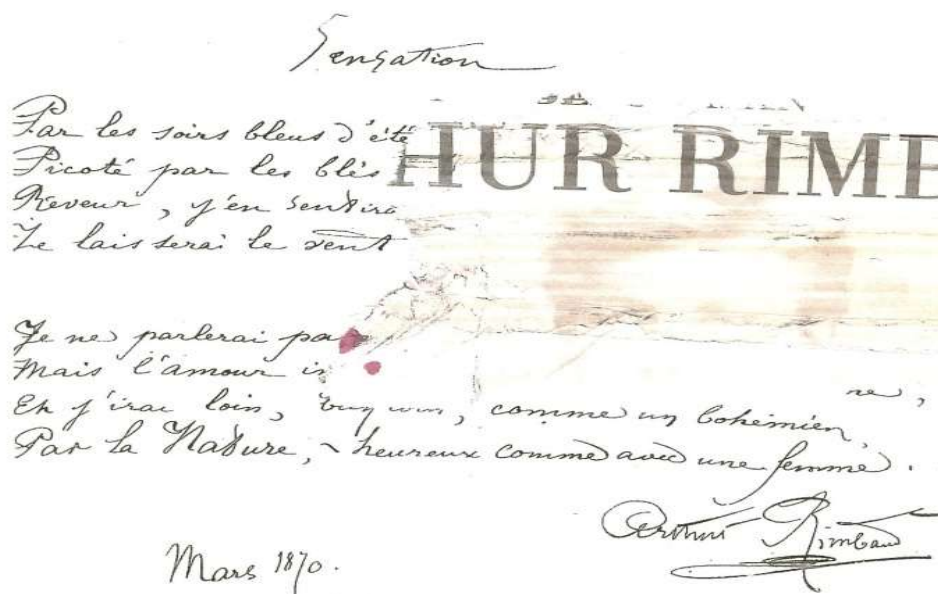 Sensation
Par les soirs bleus d'été
Picoté par les blés
HUR RIMB
Reveur, j'en sentira
Je laisserai le vent
Je ne parlerai pa
Mais l'amour in
ne,
Et j'irai loin, comme un bohémien,
Par la Nature, - heureux comme avec une femme.
Arthur Rimbaud
Mars 1870.